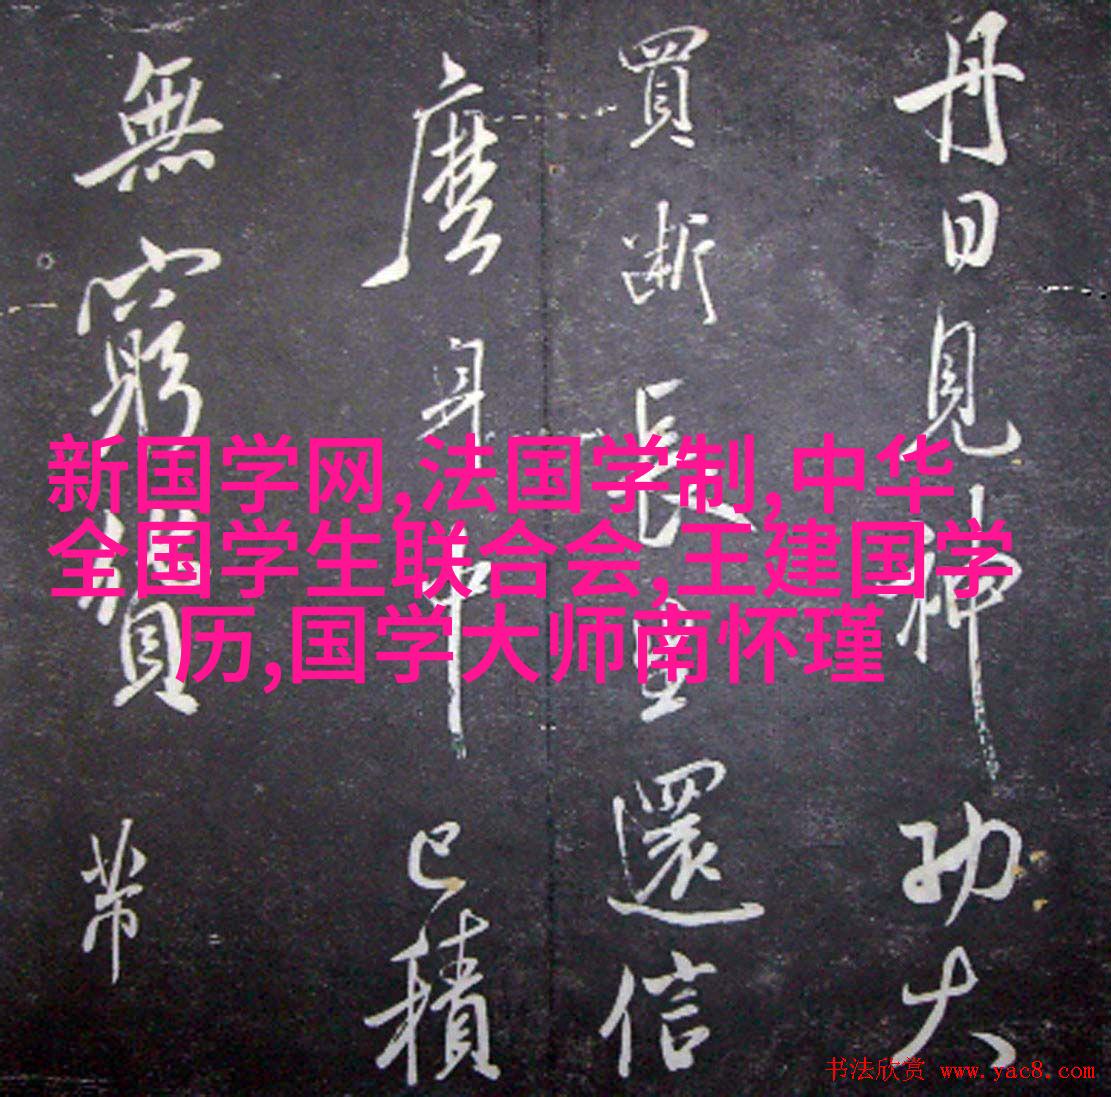 丹日見神功大
買斷長生還信
麽身中已積
無窮貨帶
新国学网,法国学制,中华
全国学生联合会,王建国学
历,国学大师南怀瑾
书法欣赏 www.yac8.com